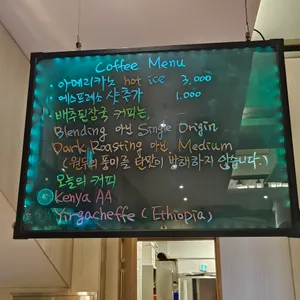 Coffee Menu
· 아메리카노 hot ice 3,000
· 에스프레소 샷추가 1,000
· 배주된장국 커피는,
Blending 아닌 Single Origin
Dark Roasting 아닌 Medium
(원두의 풍미를 탄맛이 방해하지 않습니다.)
· 오늘의 커피
Kenya AA
Yirgacheffe (Ethiopia)